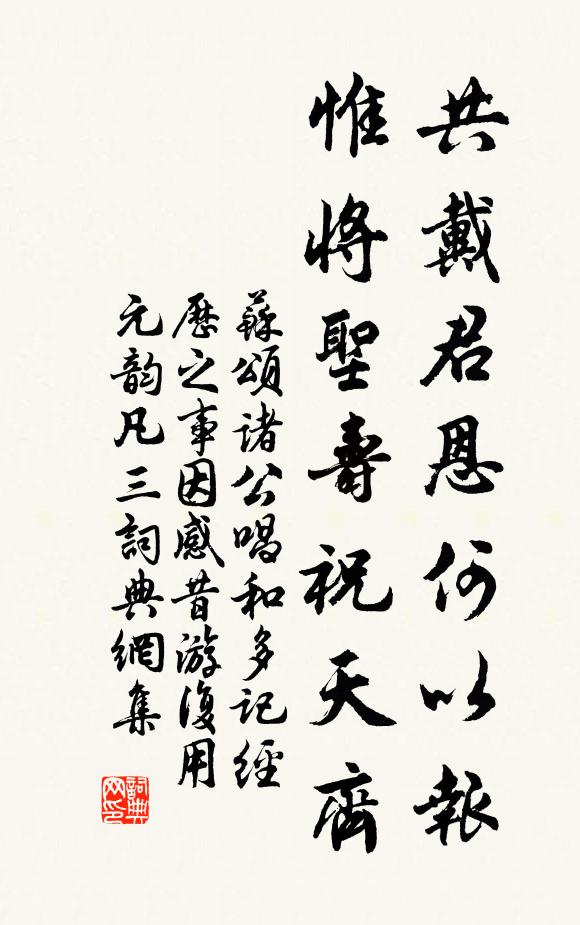 共戴君恩何以報
惟將聖壽祝天齊
蘇頌諸公唱和多記經
歷之事因感昔游復用
元韵凡三詞典網集
詞典網印